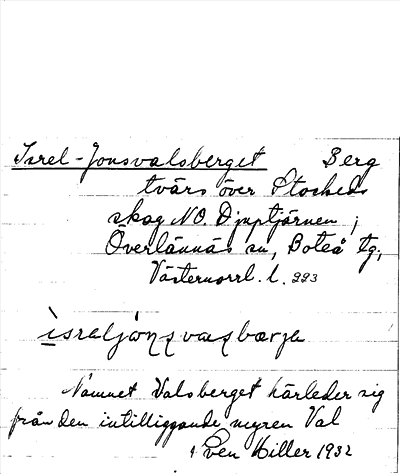 Isrel-Jonsvalsberget Berg
tvärs över Stockeds
skog NO. Djuptjärnen ;
Överlännäs sn, Boteå tg,
Västernorrl. l. 223
Namnet Valsberget härleder sig
från den intilliggande myren Val
Sven Hiller 1932